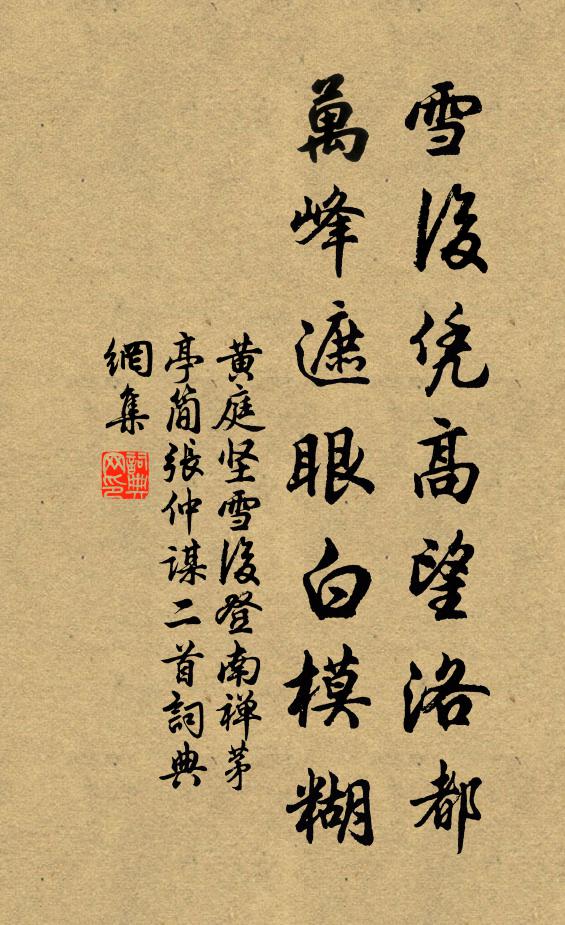 雪後凭高望洛都
萬峰遮眼白模糊
黄庭坚雪後登南禅茅
亭简張仲谋二首詞典
網集
詞典
网印